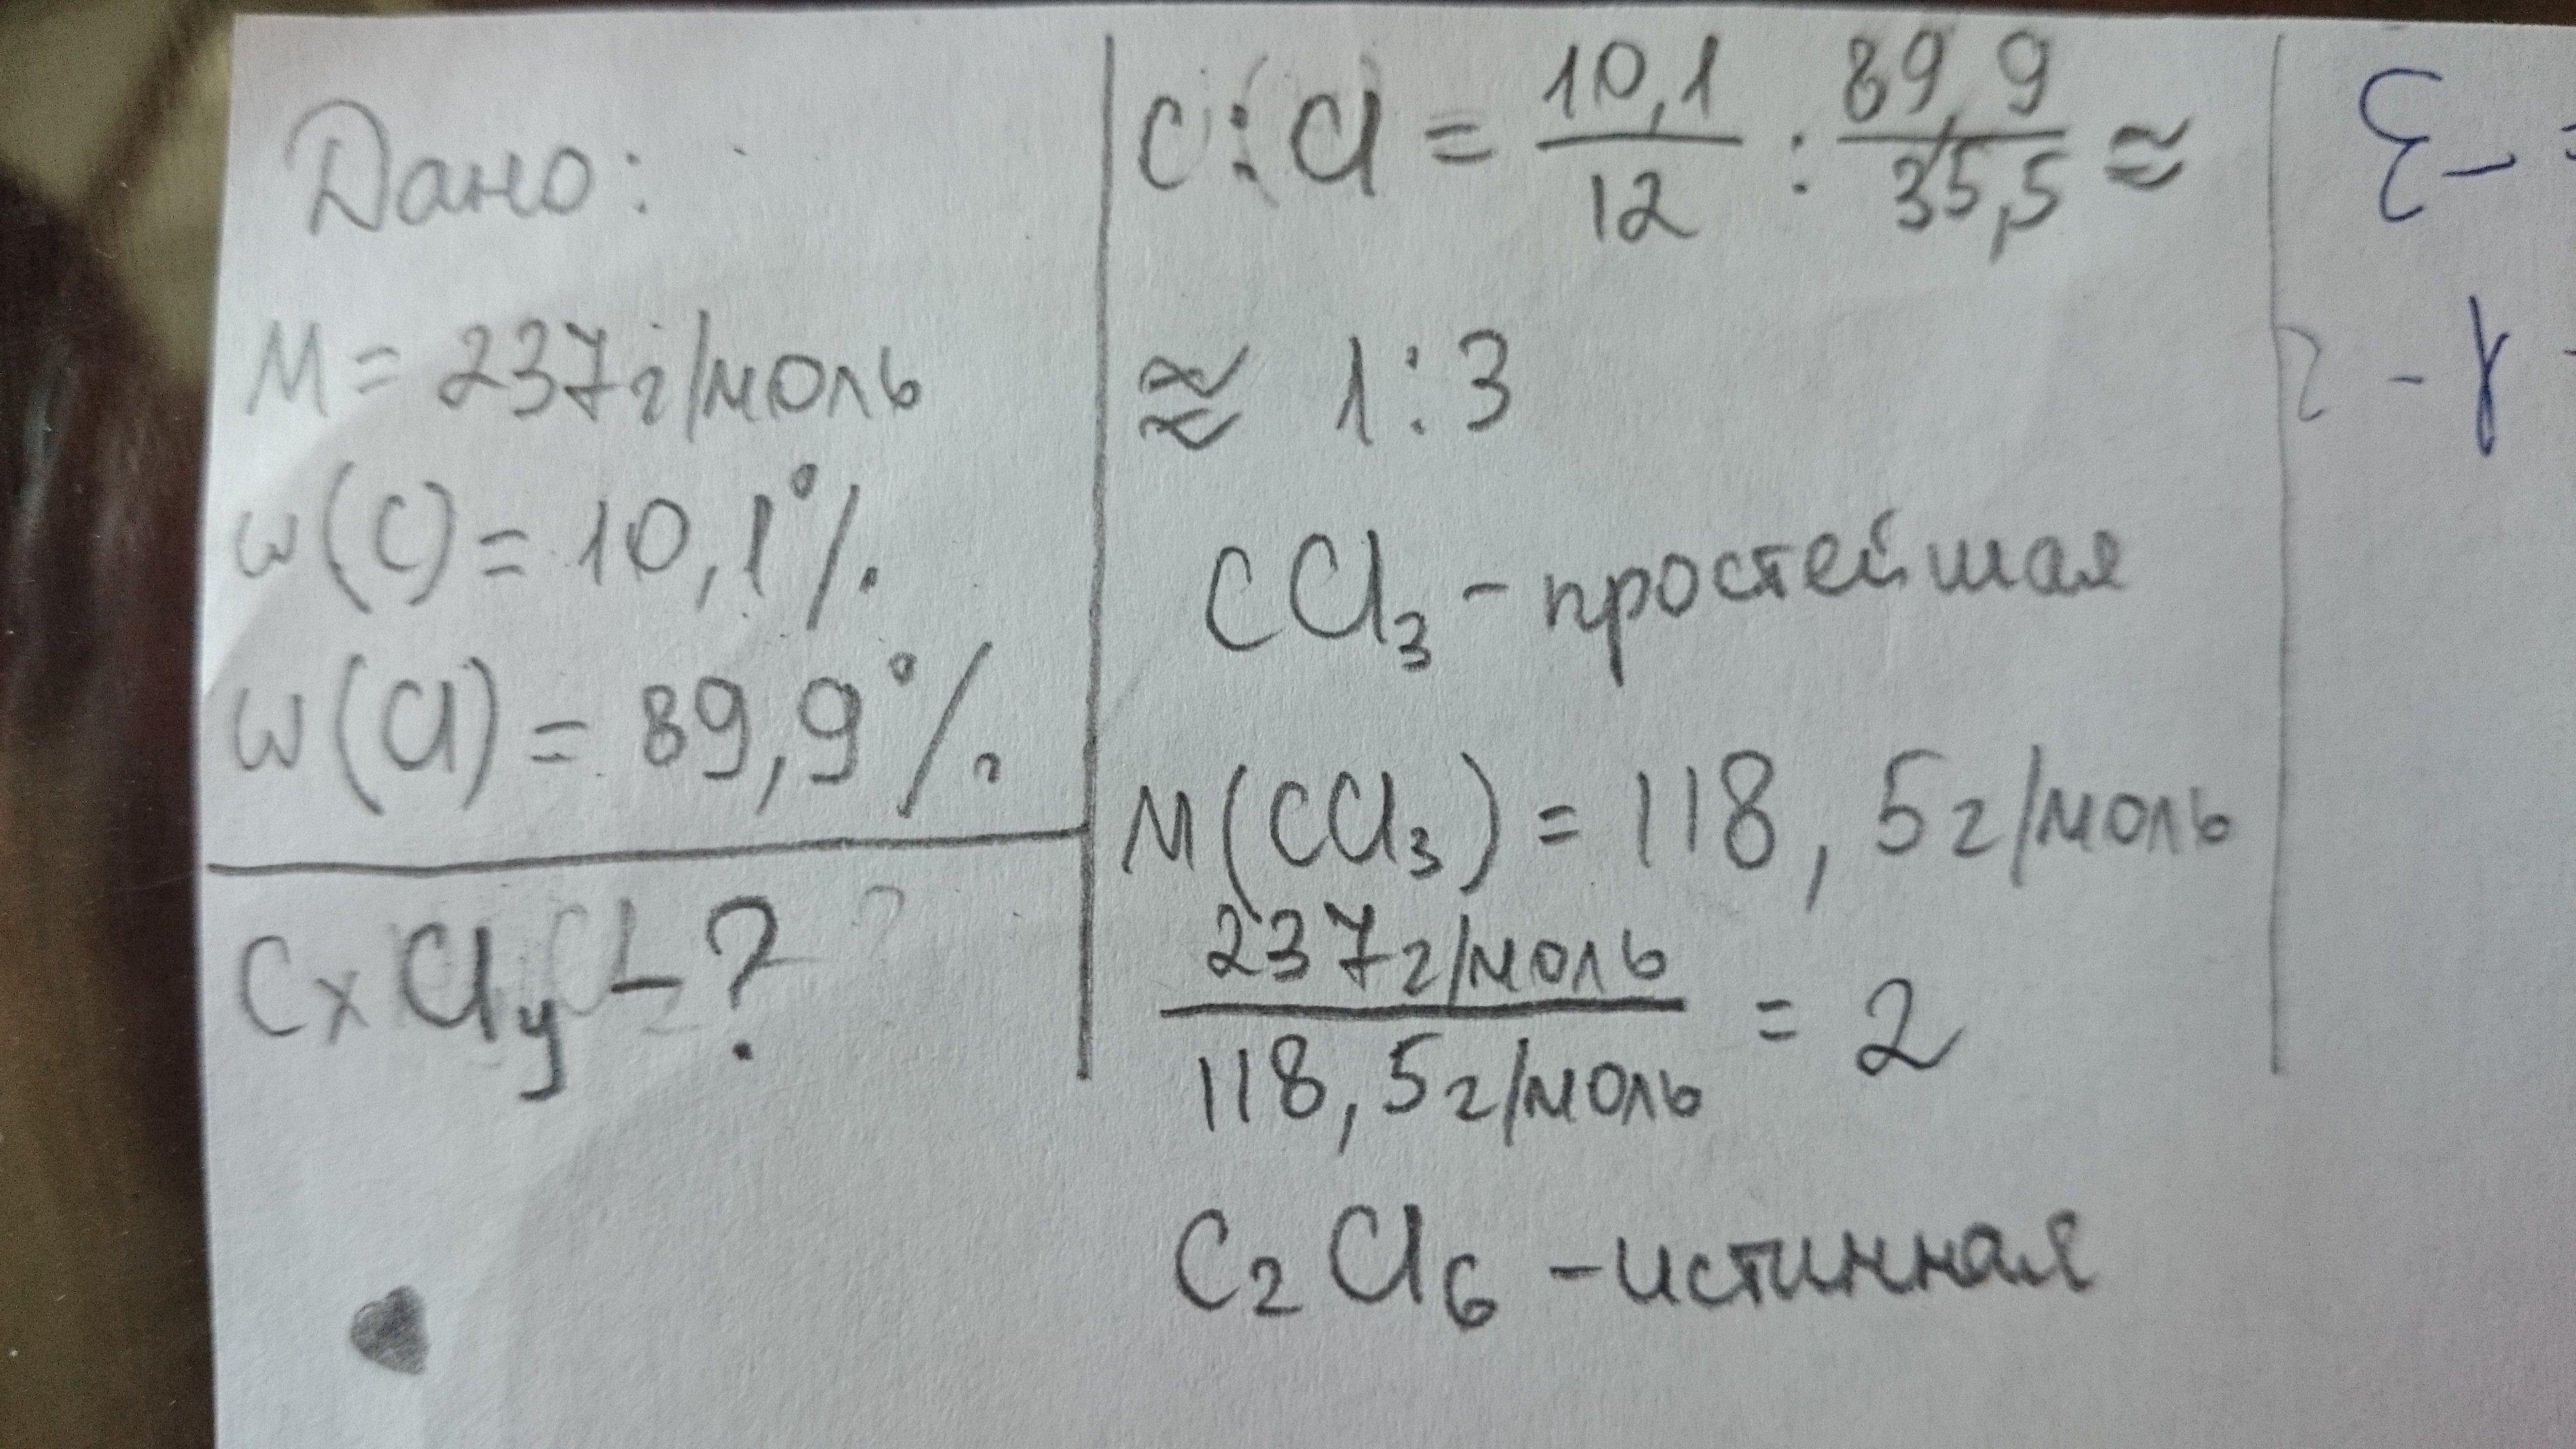 Дано:
M = 237 г/моль
w(C) = 10,1%
w(Cl) = 89,9%
CxCly - ?
C : Cl = 10,1/12 : 89,9/35,5 ≈
≈ 1:3
CCl₃ - простейшая
M(CCl₃) = 118,5 г/моль
237 г/моль / 118,5 г/моль = 2
C₂Cl₆ - истинная